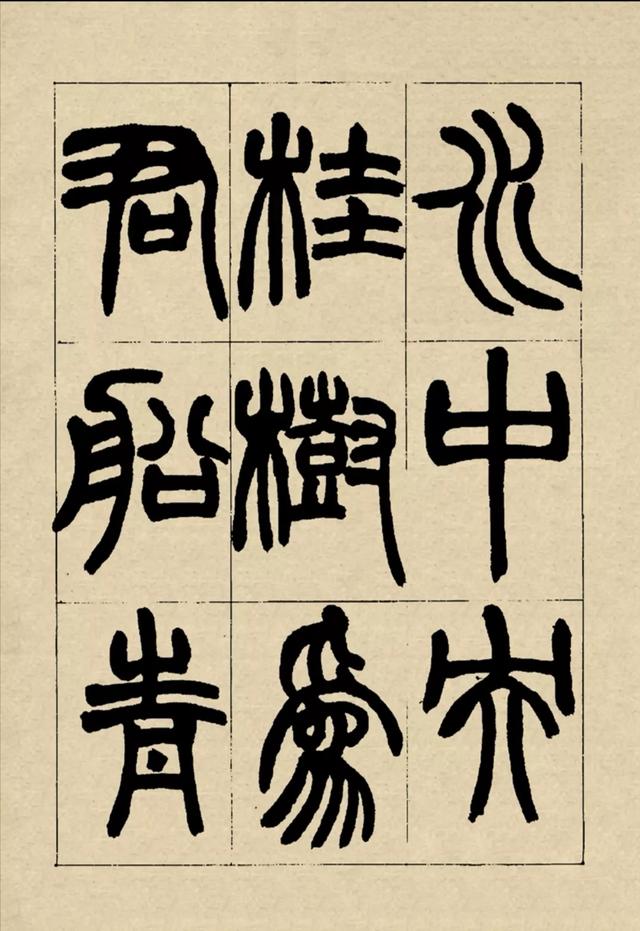 水中央
桂樹為
君船青